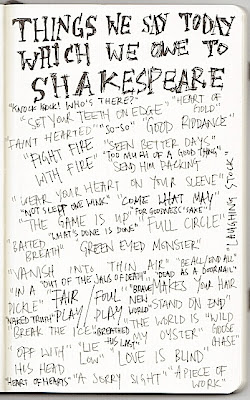 THINGS WE SAY TODAY
WHICH WE OWE TO
SHAKESPEARE
"KNOCK KNOCK! WHO'S THERE?" "HEART OF GOLD"
"SET YOUR TEETH ON EDGE"
"FAINT HEARTED" "SO-SO" "GOOD RIDDANCE"
"FIGHT FIRE WITH FIRE" "SEEN BETTER DAYS"
"TOO MUCH OF A GOOD THING"
SEND HIM PACKING
"WEAR YOUR HEART ON YOUR SLEEVE"
"NOT SLEPT ONE WINK" "COME WHAT MAY"
"THE GAME IS UP" "FOR GOODNESS' SAKE"
"LAUGHING STOCK"
"WHAT'S DONE IS DONE" FULL CIRCLE"
"BAITED BREATH" GREEN EYED MONSTER"
"VANISH INTO THIN AIR" "BE ALL/END ALL"
"IN A PICKLE" "OUT OF THE JAWS OF DEATH" "DEAD AS A DOORNAIL"
FAIR PLAY/ FOUL PLAY "BRAVE NEW WORLD" MAKES YOUR HAIR STAND ON END"
"NAKED TRUTH"
"BREAK THE ICE" "BREATHED HIS LAST" "THE WORLD IS MY OYSTER" "WILD GOOSE CHASE"
"OFF WITH HIS HEAD" "LIE LOW" "LOVE IS BLIND"
"HEART OF HEARTS" "A SORRY SIGHT" "A PIECE OF WORK"